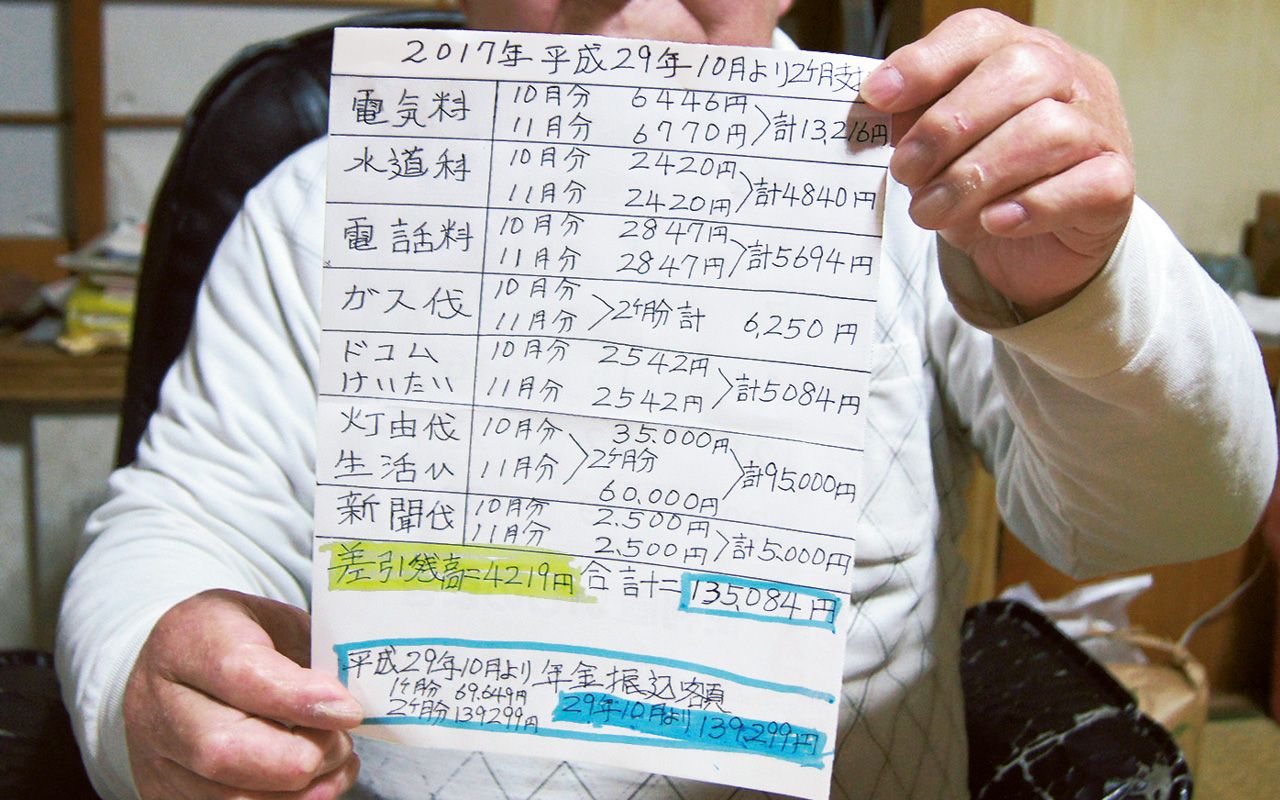 2017年 平成29年10月より2ヶ月支
電気料 10月分 6446円
11月分 6770円 計13,216円
水道料 10月分 2420円
11月分 2420円 計4840円
電話料 10月分 2847円
11月分 2847円 計5694円
ガス代 10月分
11月分 2ヶ月分計 6,250円
ドコム 10月分 2542円
けいたい 11月分 2542円 計5084円
灯由代 10月分 35.000円
生活ヒ 11月分 2ヶ月分 60.000円 計95.000円
新聞代 10月分 2.500円
11月分 2.500円 計5.000円
差引残高=4219円 合計=135,084円
平成29年10月より年金振込額
1ヶ月分 69.649円
2ヶ月分139299円 29年10月より139,299円